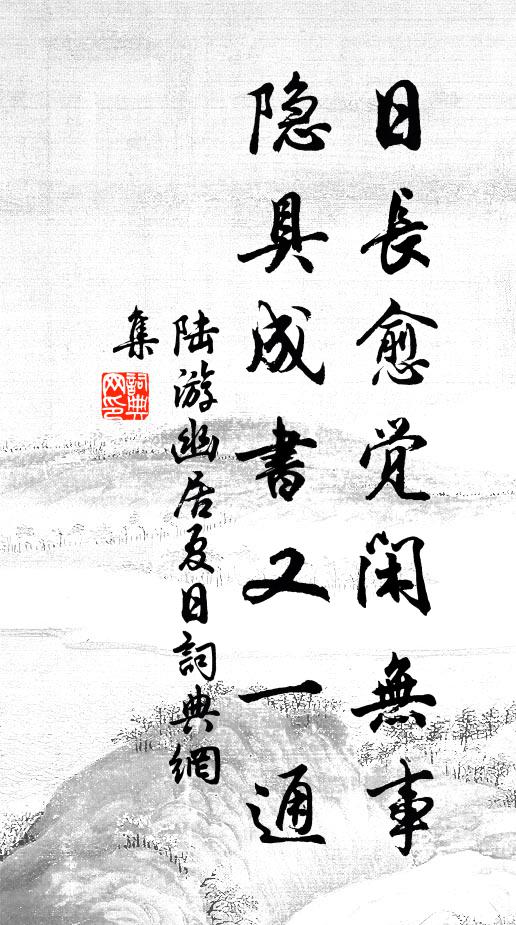 日長愈覺閑無事
隐具成書又一通
陆游幽居夏日詞典網
集
詞典
网印